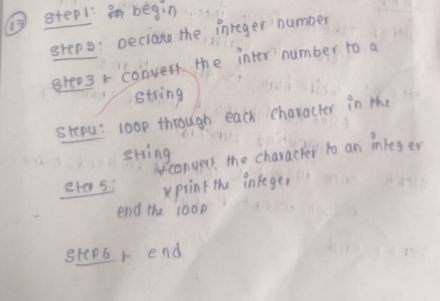 (17) Step1: begin
Step2: Declare the integer number
Step3: convert the inter number to a
String
Step4: loop through each character in the
string
convert the character to an integer
Step5: * print the integer
end the loop
Step6: end